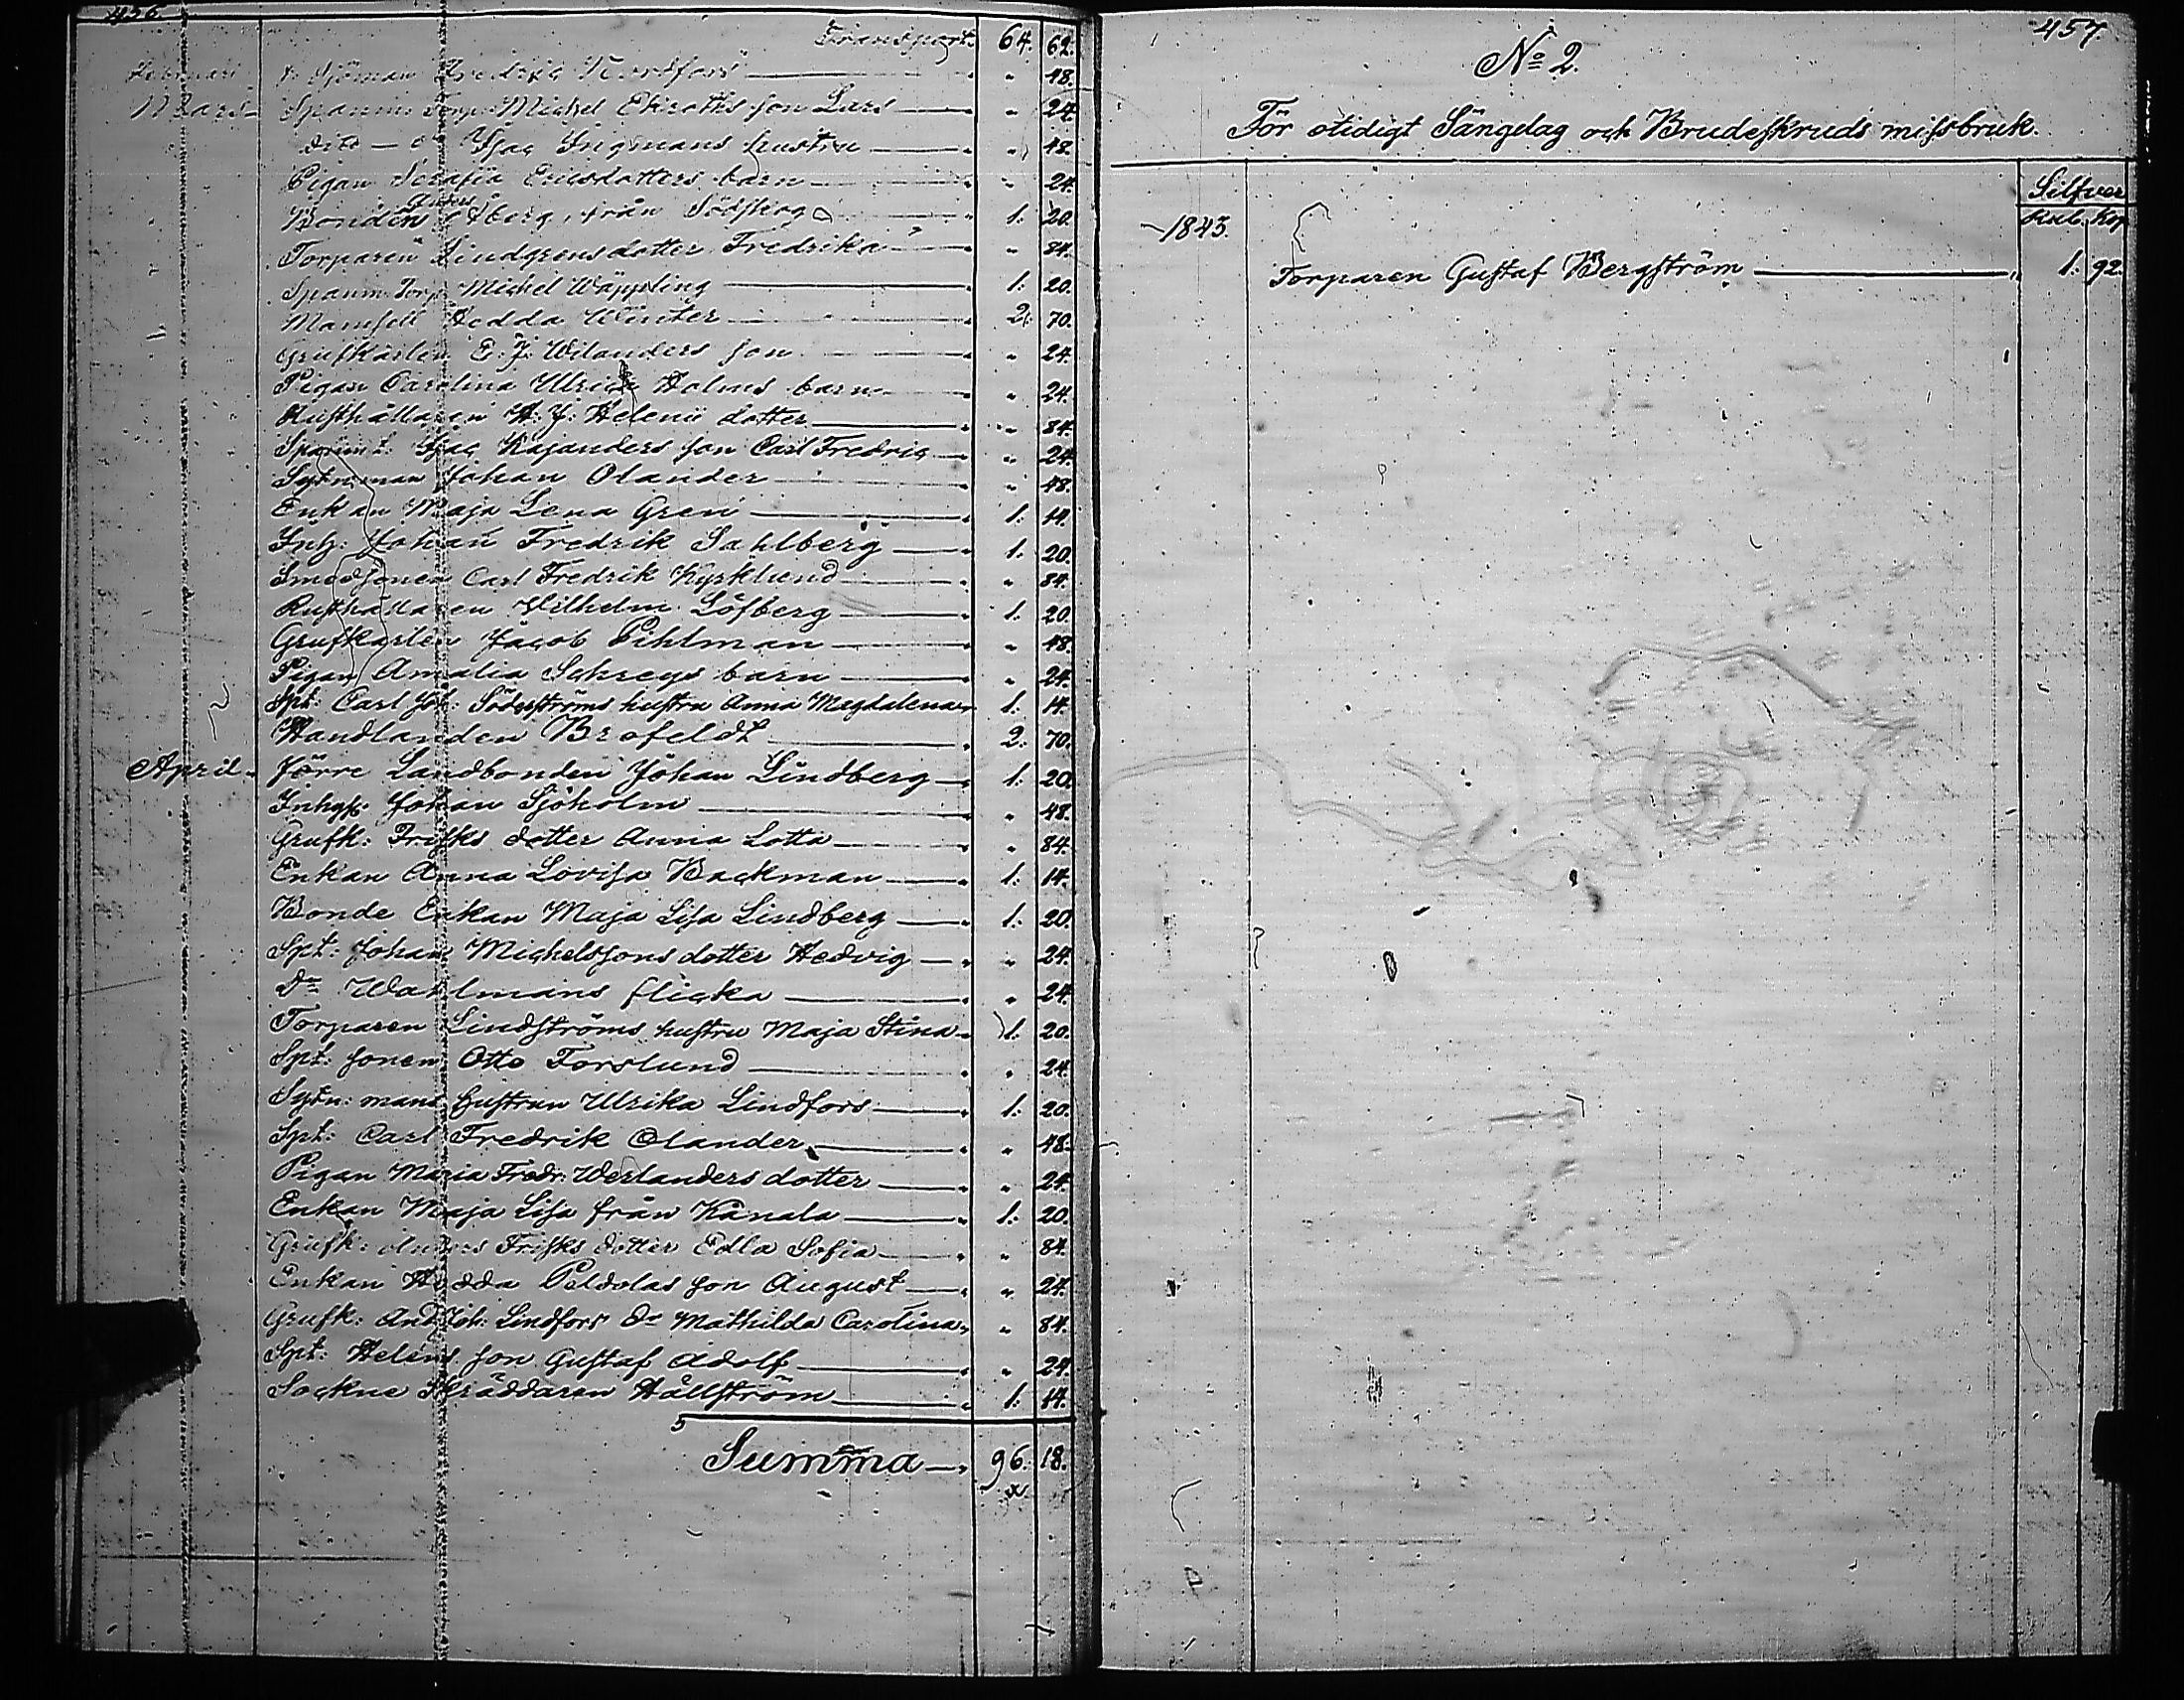 456.
Transport. 64. 62.
Februari Sjöman Fredrik Nordfors " 48.
Mars Spanm: Torp: Michel Ekroths son Lars " 24
dito - o Isac Ingmans hustru " 48.
Pigan Serafia Ericsdotters barn " 24.
Bonden Åberg, från 1: 20.
Torparen Lindgrens dotter Fredrika " 84.
Spanm. Torp: Michel Wäppling 1: 20.
Mamsell Hedda Winter 2: 70.
Grufkarlen E. J. Wilanders son " 24.
Pigan Carolina Ulrica Holms barn " 24.
Rusthållaren A. J. Helenii dotter " 84.
Spanm t: Isac Kajanders son Carl Fredric " 24
Sytn: man Johan Olander " 48.
Enkan Maja Lena Gren 1: 14.
Inh: Johan Fredrik Sahlberg 1: 20.
Smedsonen Carl Fredrik Kyrklund " 84.
Rusthållaren Vilhelm Löfberg 1: 20.
Grufkarlen Jacob Pihlman " 48.
Pigan Amalia Schreys barn " 24.
Spt: Carl Joh: Söderströms hustru Anna Magdalena 1: 14.
Handlanden Brofeldt 2: 70.
April Förre Landbonden Johan Lindberg 1: 20.
Inhys: Johan Sjöholm " 48.
Grufk: Frisks dotter Anna Lotta " 84.
Enkan Anna Lovisa Backman 1: 14.
Bonde Enkan Maja Lisa Lindberg 1: 20
Spt: Johan Michelssons dotter Hedvig " 24.
Do Wahlmans flicka " 24.
Torparen Lindströms hustru Maja Stina 1: 20.
Spt: sonen Otto Forslund " 24.
Sytn: mans hustrun Ulrika Lindfors 1: 20.
Spt: Carl Fredrik Olander " 48.
Pigan Maria Fredr: Werlanders dotter " 24.
Enkan Maja Lisa från Kånala 1: 20.
Grufk: Anders Frisks dotter Edla Sofia " 84.
Enkan Hedda Peldolas son August " 24.
Grufk: And Joh: Lindfors Do Mathilda Carolina " 84.
Spt: Heléns son Gustaf Adolf " 24.
Sockne Skräddaren Hällström 1: 14.
Summa 96. 18.
457.
No 2.
För otidigt Sängelag och Brudeskruds missbruk.
Silfver
Rub. Kop
1843.
Torparen Gustaf Bergström 1: 92.